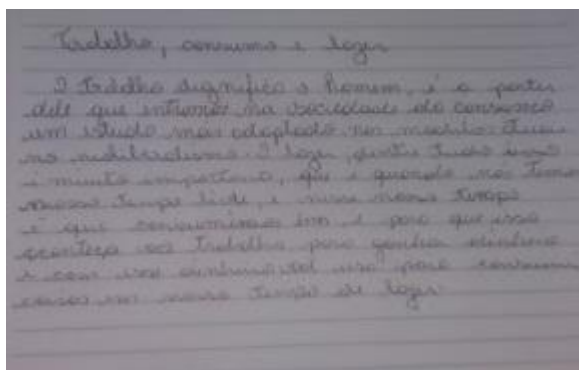 Trabalho, consumo e lazer
O Trabalho dignifica o homem, é a partir
dele que entramos na sociedade do consumo
um estudo mais adaptado nos
no neoliberalismo. O lazer, dentre tudo isso
é muito importante, que é quando nós temos
nosso tempo livre, e nesse nosso tempo
é que consumimos isso, e para que isso
aconteça você trabalha para ganhar dinheiro
e com esse dinheiro você usa para consumir
coisas em nosso tempo de lazer